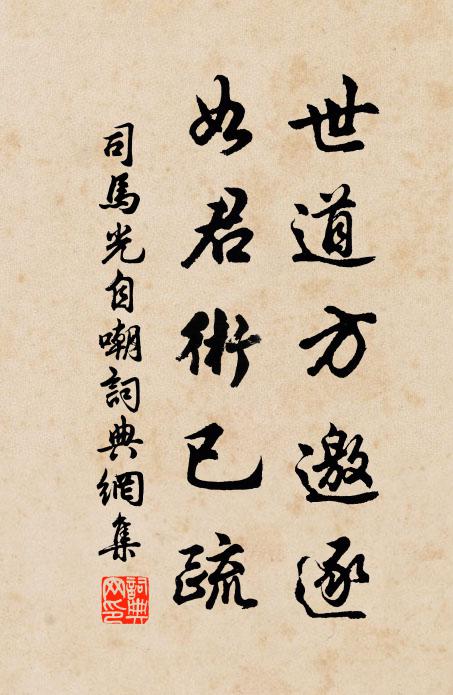 世道方邀逐
如君術已疏
司馬光自嘲詞典網集
詞典網印